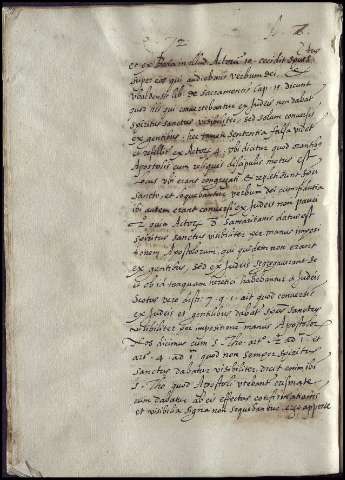 et ex Beda in illud Actor. 10. cecidit spus stus
super eos qui audiebant verbum dei. Et
Vvaldensis lib. de sacramentis cap. 15. dicunt
quod iis qui convertebantur ex Judeis non dabat
spiritus sanctus visibiliter, sed solum conversis
ex gentibus. hec tamen sententia falsa videt
et refellit ex Actor. 4. ubi dicitur quod orantibus
Apostolis cum reliquis discipulis motus est
locus ubi erant congregati & repleti sunt spu
sancto, et loquebantur verbum dei cum fiducia
ibi autem erant conversi ex Judeis non pauci
Et quia Actor. 8 Samaritanis datus est
spiritus sanctus visibiliter per manus imposi
tionem Apostolorum, qui quidem non erant
ex gentibus, sed ex Judeis
et ob id tanquam heretici habebantur a Judeis
Scotus vero dist. 7. q. 1. ait quod conversis
ex Judeis et gentibus dabat spus sanctus
visibiliter per impositione manus Apostolor
Nos dicimus cum S. Tho. art. 2. ad 1. et
art. 4. ad 1. quod non semper spiritus
sanctus dabatur visibiliter, dicit enim ibi
S. Tho. quod Apostoli utebant crismate
cum dabatur ab eis effectus confirmationis
et visibilia signa non sequebantur